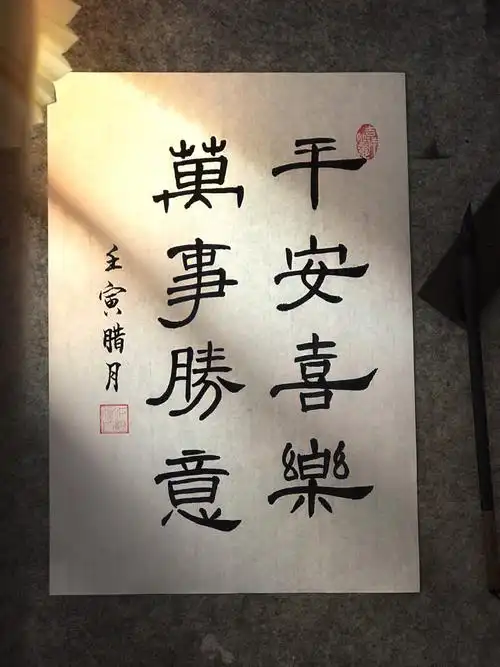 平安喜樂
萬事勝意
壬寅腊月